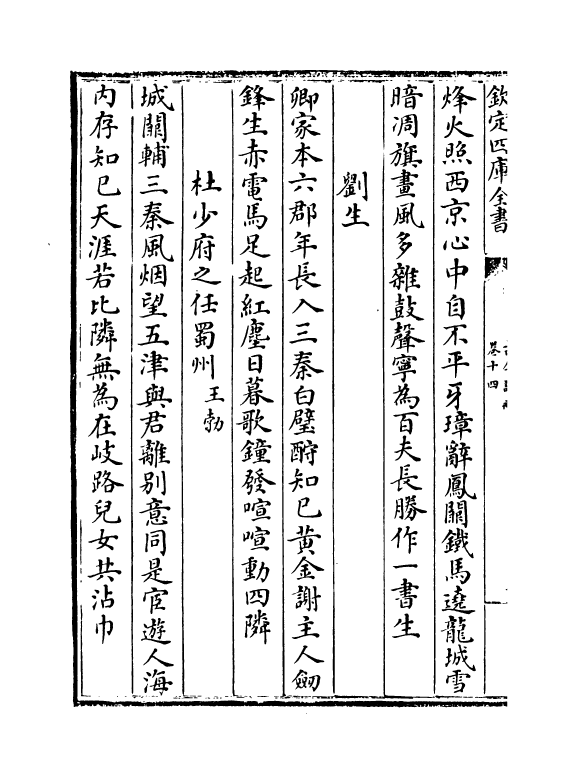 欽定四庫全書
卷十四
烽火照西京心中自不平牙璋辭鳳闕鐵馬遶龍城雪
暗凋旗畫風多雜鼓聲寧為百夫長勝作一書生
劉生
卿家本六郡年長入三秦白璧酧知已黃金謝主人劒
鋒生赤電馬足起紅塵日暮歌鐘發喧喧動四隣
杜少府之任蜀州 王勃
城闕輔三秦風烟望五津與君離别意同是宦遊人海
内存知已天涯若比隣無為在岐路兒女共沾巾